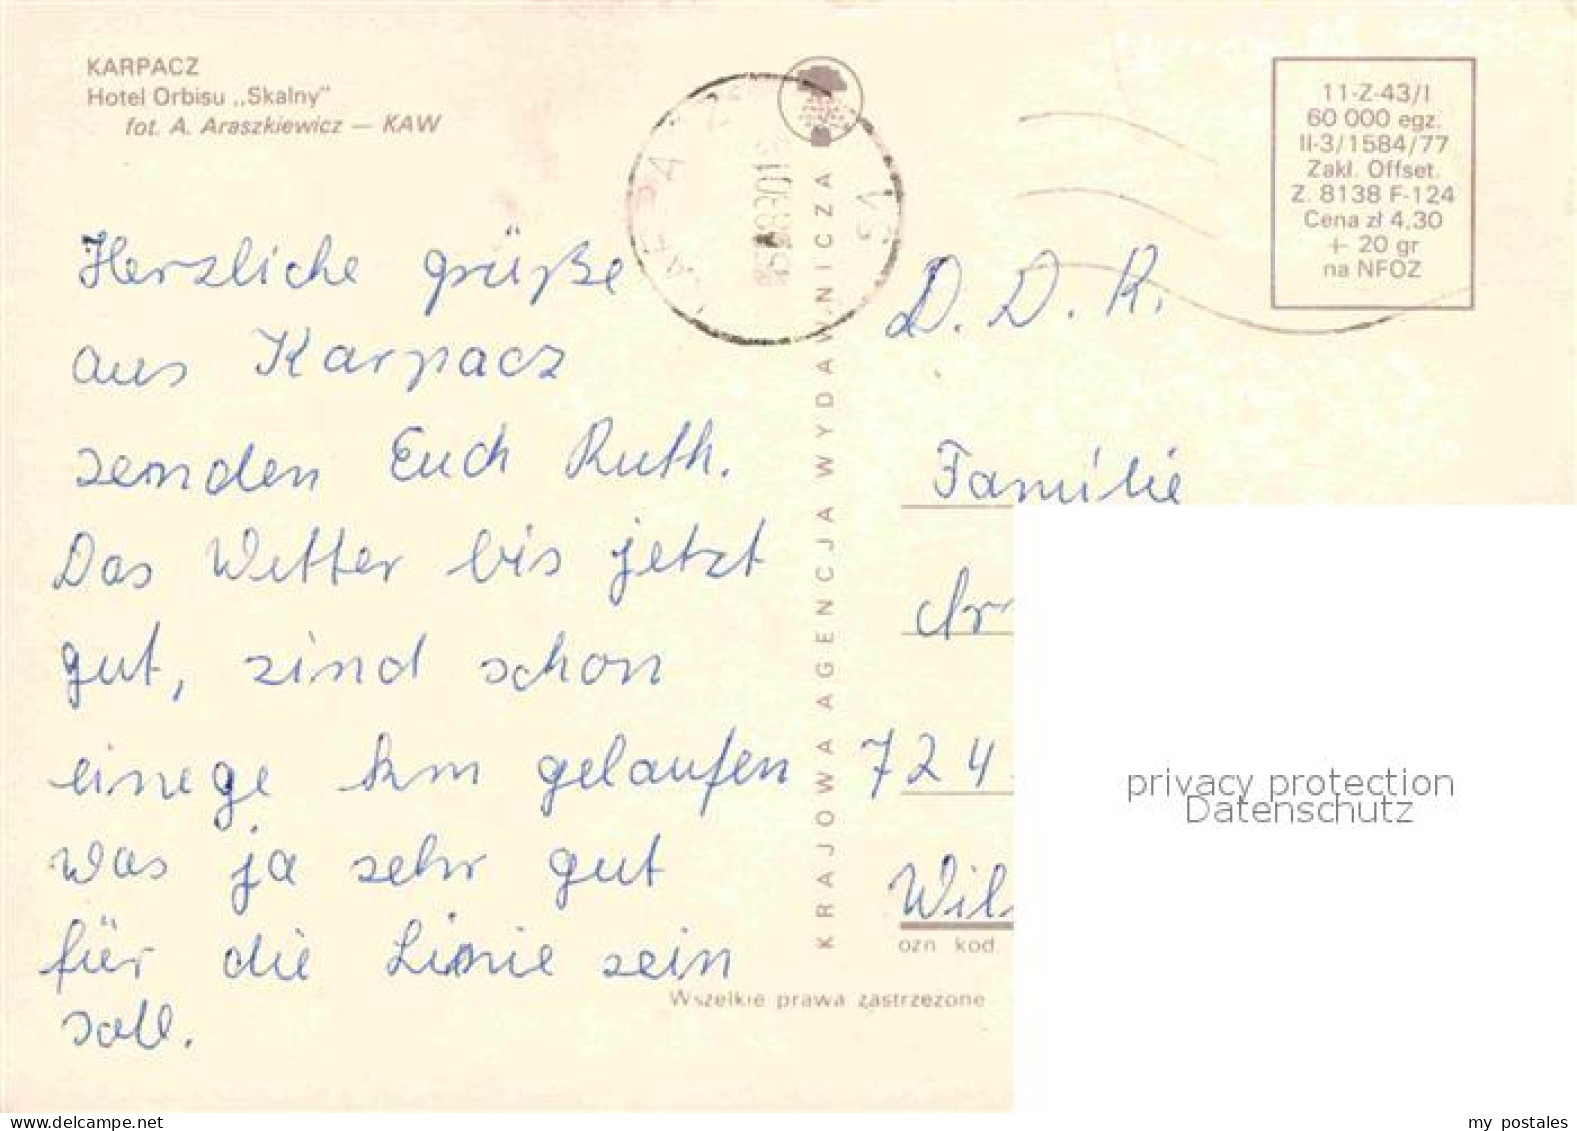 KARPACZ
Hotel Orbisu „Skalny"
fot. A. Araszkiewicz — KAW
Herzliche grüße
aus Karpacz
senden Euch Ruth.
Das Wetter bis jetzt
gut, sind schon
einege km gelaufen
was ja sehr gut
für die Linie sein
soll.
KRAJOWA AGENCJA WYDAWNICZA
11-Z-43/I
60 000 egz.
II-3/1584/77
Zakl. Offset.
Z. 8138 F-124
Cena zł 4,30
+ 20 gr
na NFOZ
D. D. R.
Familie
724
Wil
ozn kod
Wszelkie prawa zastrzeżone
privacy protection
Datenschutz
www.delcampe.net
my_postales